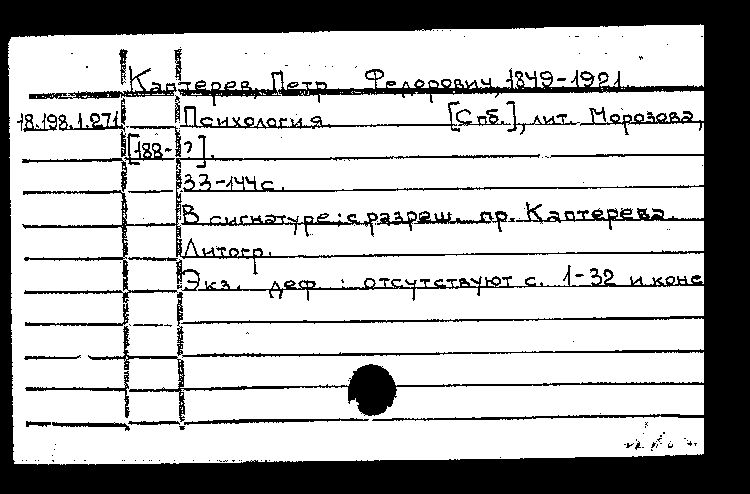 Каптерев, Петр Федорович, 1849-1921
18.198.1.271 Психология. [Спб.], лит. Морозова,
[188-?].
33-144с.
В сигнатуре: с разреш. пр. Каптерева.
Литогр.
Экз. деф : отсутствуют с. 1-32 и коне